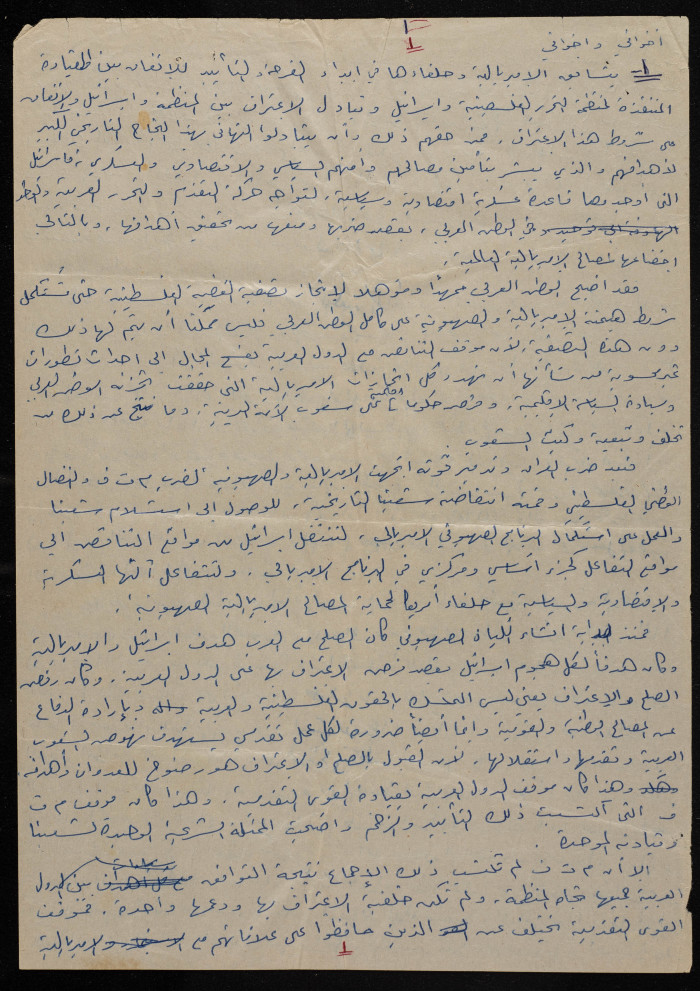 1
اخواتي واخواني
1- يتسابق الامبريالية وحلفاءها في ابداء الفرحة والتأييد للاتفاق بين القيادة
المتنفذة لمنظمة التحرير الفلسطينية واسرائيل وتبادل الاعتراف بين المنظمة واسرائيل والاتفاق
على شروط هذا الاعتراف. فمن حقهم ذلك وأن يتبادلوا التهاني بهذا النجاح التاريخي الكبير
لأهدافهم والذي يبشر بتأمين مصالحهم وأمنهم السياسي والاقتصادي والعسكري، فاسرائيل
التي أوجدوها قاعدة عسكرية اقتصادية وسياسية، لتواجه حركة التقدم والتحرر العربية
في الوطن العربي، بقصد ضربها ومنعها من تحقيق أهدافها، وبالتالي
اخضاعها لمصالح الامبريالية العالمية.
فقد اصبح الوطن العربي ممهداً ومؤهلا لإنجاز تصفية القضية الفلسطينية حتى تُستكمل
شروط هيمنة الامبريالية والصهيونية على كامل الوطن العربي فليس ممكنا أن يتم لها ذلك
دون هذه التصفية، لأن موقف التناقض مع الدول العربية يفسح المجال الى احداث تطورات
غير محسوبة من شأنها أن تهدد كل انجازات الامبريالية التي حققت تجزئة الوطن العربي
وسيادة السياسة الاقليمية، وفرض حكومات اقليمية على شعوب الأمة العربية، وما نتج عن ذلك من
تخلف وتبعية وكبت الشعوب.
فبعد ضرب العراق وتدمير قوته اتجهت الامبريالية والصهيونية لضرب م ت ف والنضال
الوطني الفلسطيني وضمنه انتفاضة شعبنا التاريخية، للوصول الى استسلام شعبنا
والعمل على استكمال البرنامج الصهيوني الامبريالي، لتنتقل اسرائيل من مواقع التناقض الى
مواقع التفاعل كجزء اساسي ومركزي في البرنامج الامبريالي، ولتتفاعل آلتها العسكرية
والاقتصادية والسياسية مع حلفاء أمريكا لحماية المصالح الامبريالية الصهيونية.
فمنذ بداية انشاء الكيان الصهيوني كان الصلح مع العرب هدف اسرائيل والامبريالية
وكان هدفاً لكل هجوم اسرائيل بقصد فرض الاعتراف بها على الدول العربية. وكان رفض
الصلح والاعتراف يعني ليس التمسك بالحقوق الفلسطينية والعربية وبإرادة الدفاع
عن المصالح الوطنية والقومية وانما أيضاً ضرورة لكل عمل تقدمي يستهدف نهوض الشعوب
العربية وتقدمها واستقلالها. لأن القبول بالصلح او الاعتراف هو رضوخ للعدوان وأهدافه
وهذا كان موقف الدول العربية بقيادة القوى التقدمية. وهذا كان موقف م ت
ف التي اكتسبت ذلك التأييد والزخم واضحت الممثلة الشرعية الوحيدة لشعبنا
وقيادته الموحدة.
الا أن م ت ف لم تكتسب ذلك الإجماع نتيجة التوافق بين الدول
العربية جميعها تجاه المنظمة، ولم تكن خلفية الاعتراف بها ودعمها واحدة. فموقف
القوى التقدمية يختلف عن الذين حافظوا على علاقاتهم مع الامبريالية
1